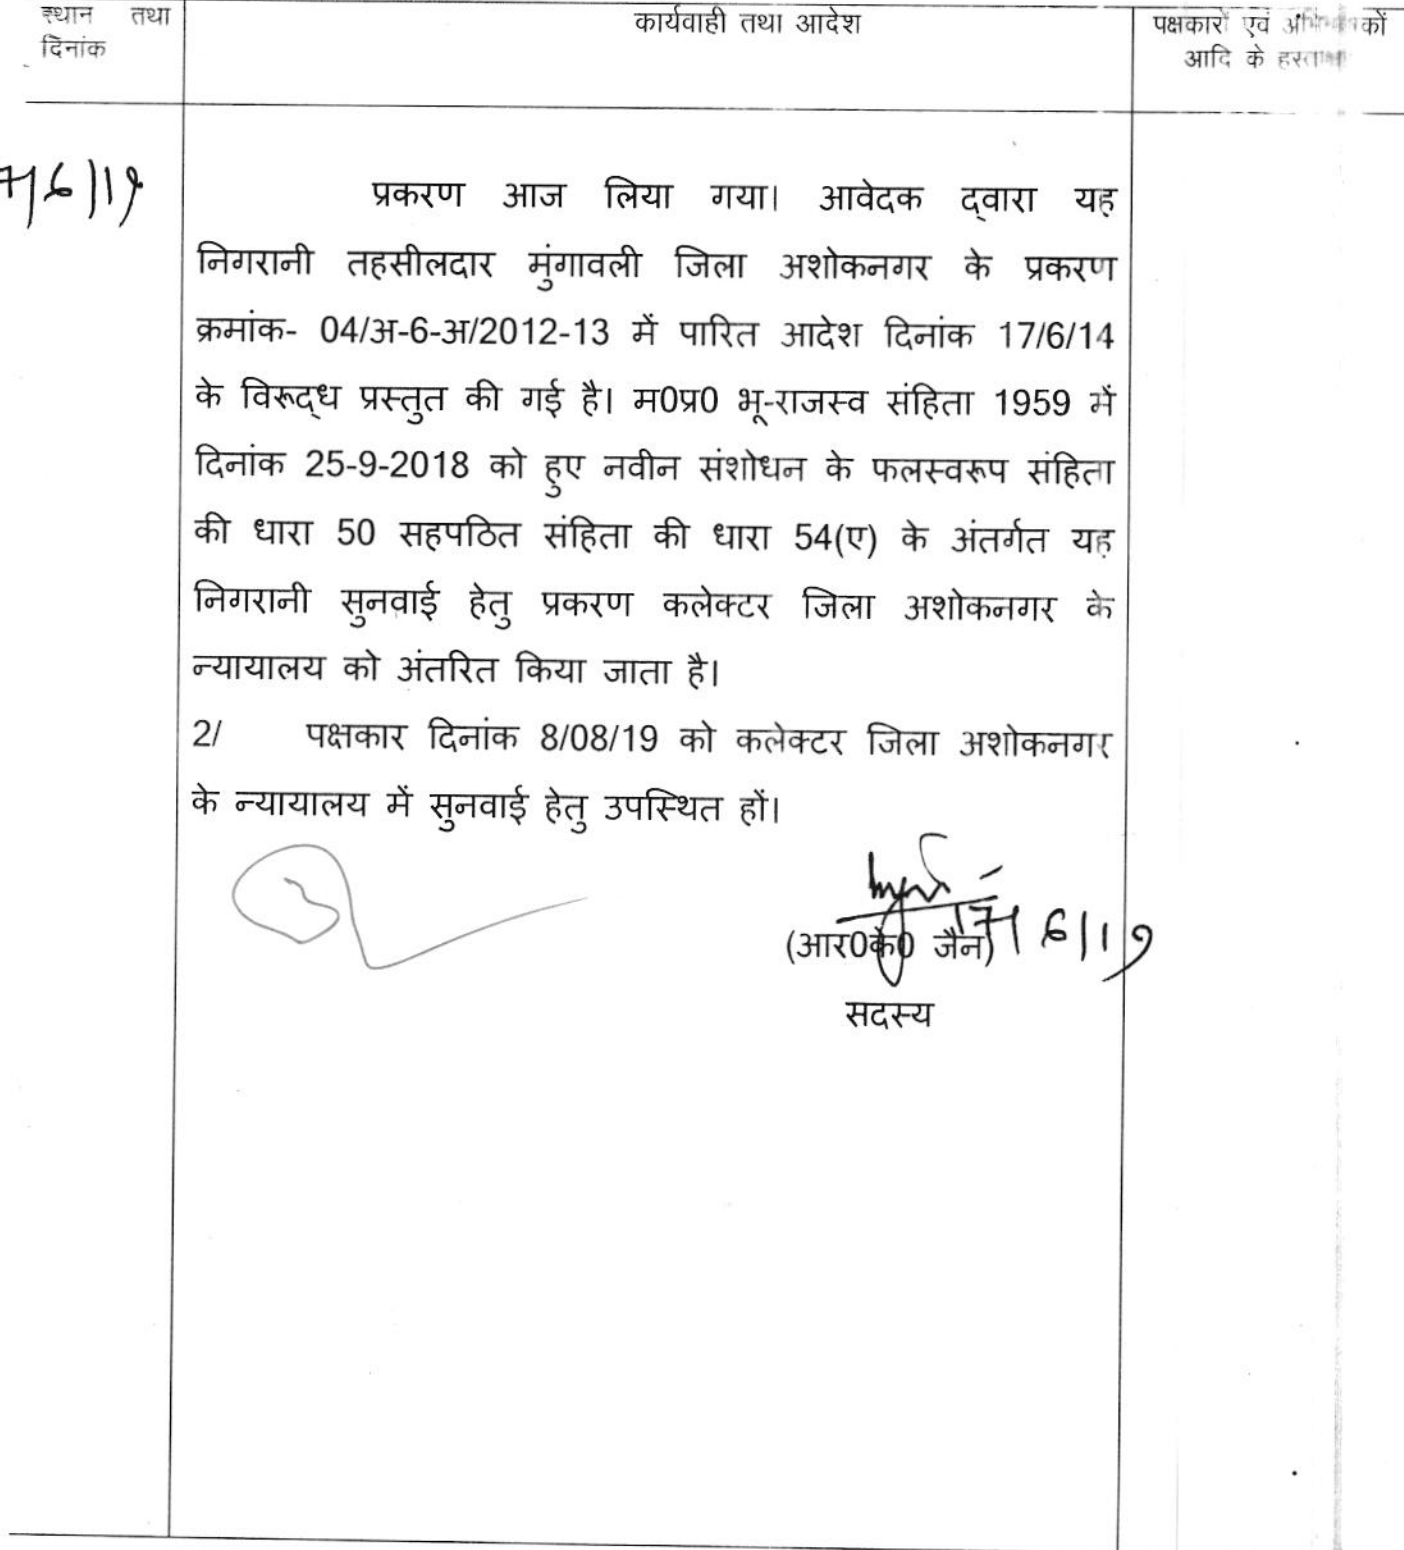 स्थान तथा
दिनांक
कार्यवाही तथा आदेश
पक्षकारों एवं
आदि के
7/6/19
प्रकरण आज लिया गया। आवेदक द्वारा यह
निगरानी तहसीलदार मुंगावली जिला अशोकनगर के प्रकरण
क्रमांक- 04/अ-6-अ/2012-13 में पारित आदेश दिनांक 17/6/14
के विरूद्ध प्रस्तुत की गई है। म0प्र0 भू-राजस्व संहिता 1959 में
दिनांक 25-9-2018 को हुए नवीन संशोधन के फलस्वरूप संहिता
की धारा 50 सहपठित संहिता की धारा 54(ए) के अंतर्गत यह
निगरानी सुनवाई हेतु प्रकरण कलेक्टर जिला अशोकनगर के
न्यायालय को अंतरित किया जाता है।
2/ पक्षकार दिनांक 8/08/19 को कलेक्टर जिला अशोकनगर
के न्यायालय में सुनवाई हेतु उपस्थित हों।
17/6/19
(आर0के0 जैन)
सदस्य